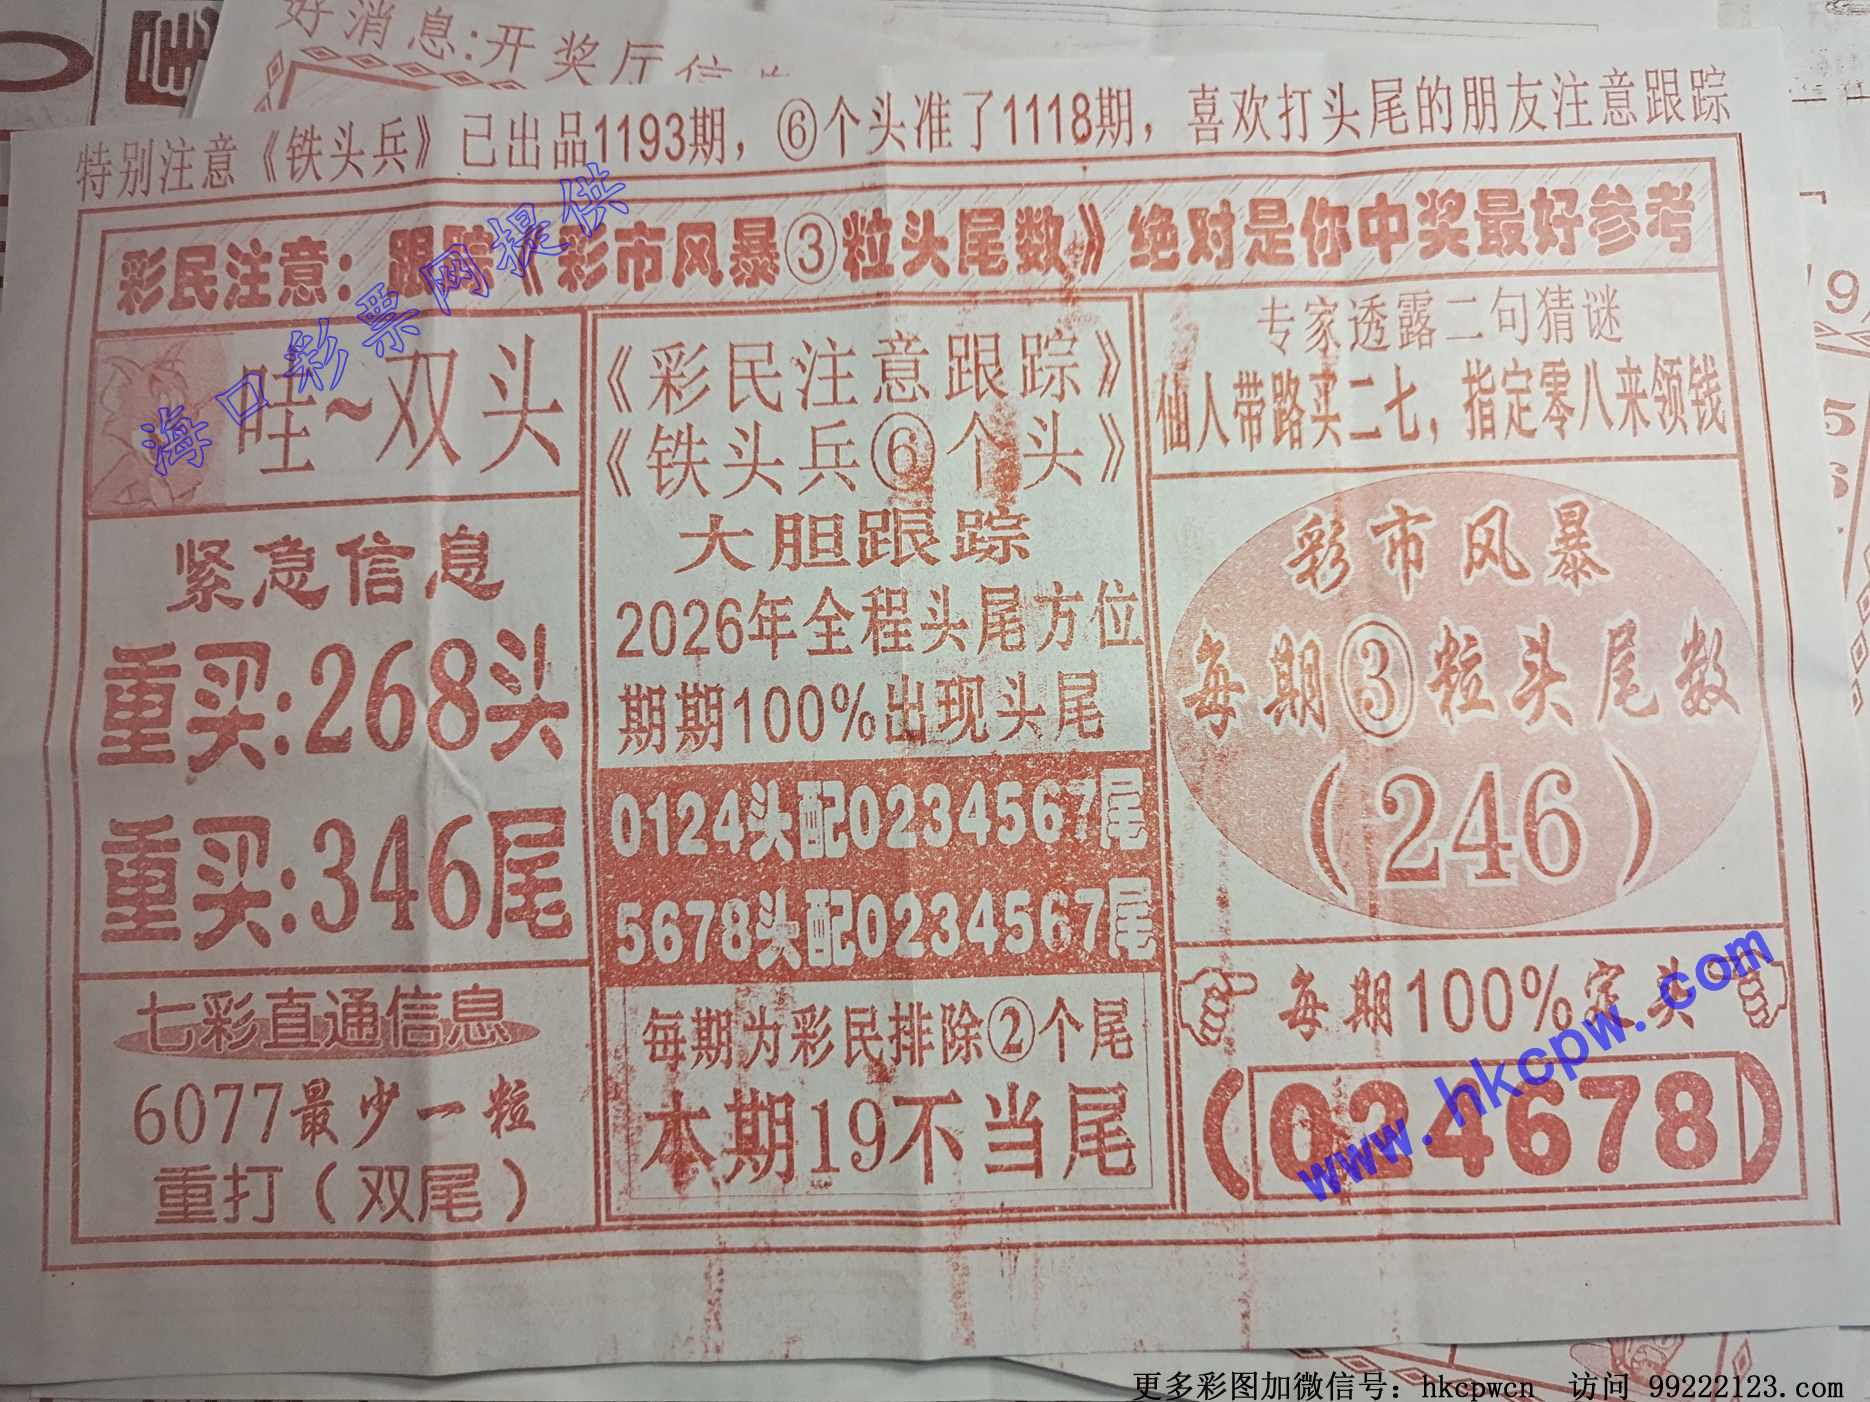 好消息:开奖厅信
特别注意《铁头兵》已出品1193期，⑥个头准了1118期，喜欢打头尾的朋友注意跟踪
彩民注意：跟踪《彩市风暴③粒头尾数》绝对是你中奖最好参考
海口彩票网提供
哇~双头
紧急信息
重买:268头
重买:346尾
七彩直通信息
6077最少一粒
重打（双尾）
《彩民注意跟踪》
《铁头兵⑥个头》
大胆跟踪
2026年全程头尾方位
期期100%出现头尾
0124头配0234567尾
5678头配0234567尾
每期为彩民排除②个尾
本期19不当尾
专家透露二句猜谜
仙人带路买二七，指定零八来领钱
彩市风暴
每期③粒头尾数
（246）
每期100%定头
（024678）
www.hkcpw.com
更多彩图加微信号：hkcpwcn 访问 99222123.com